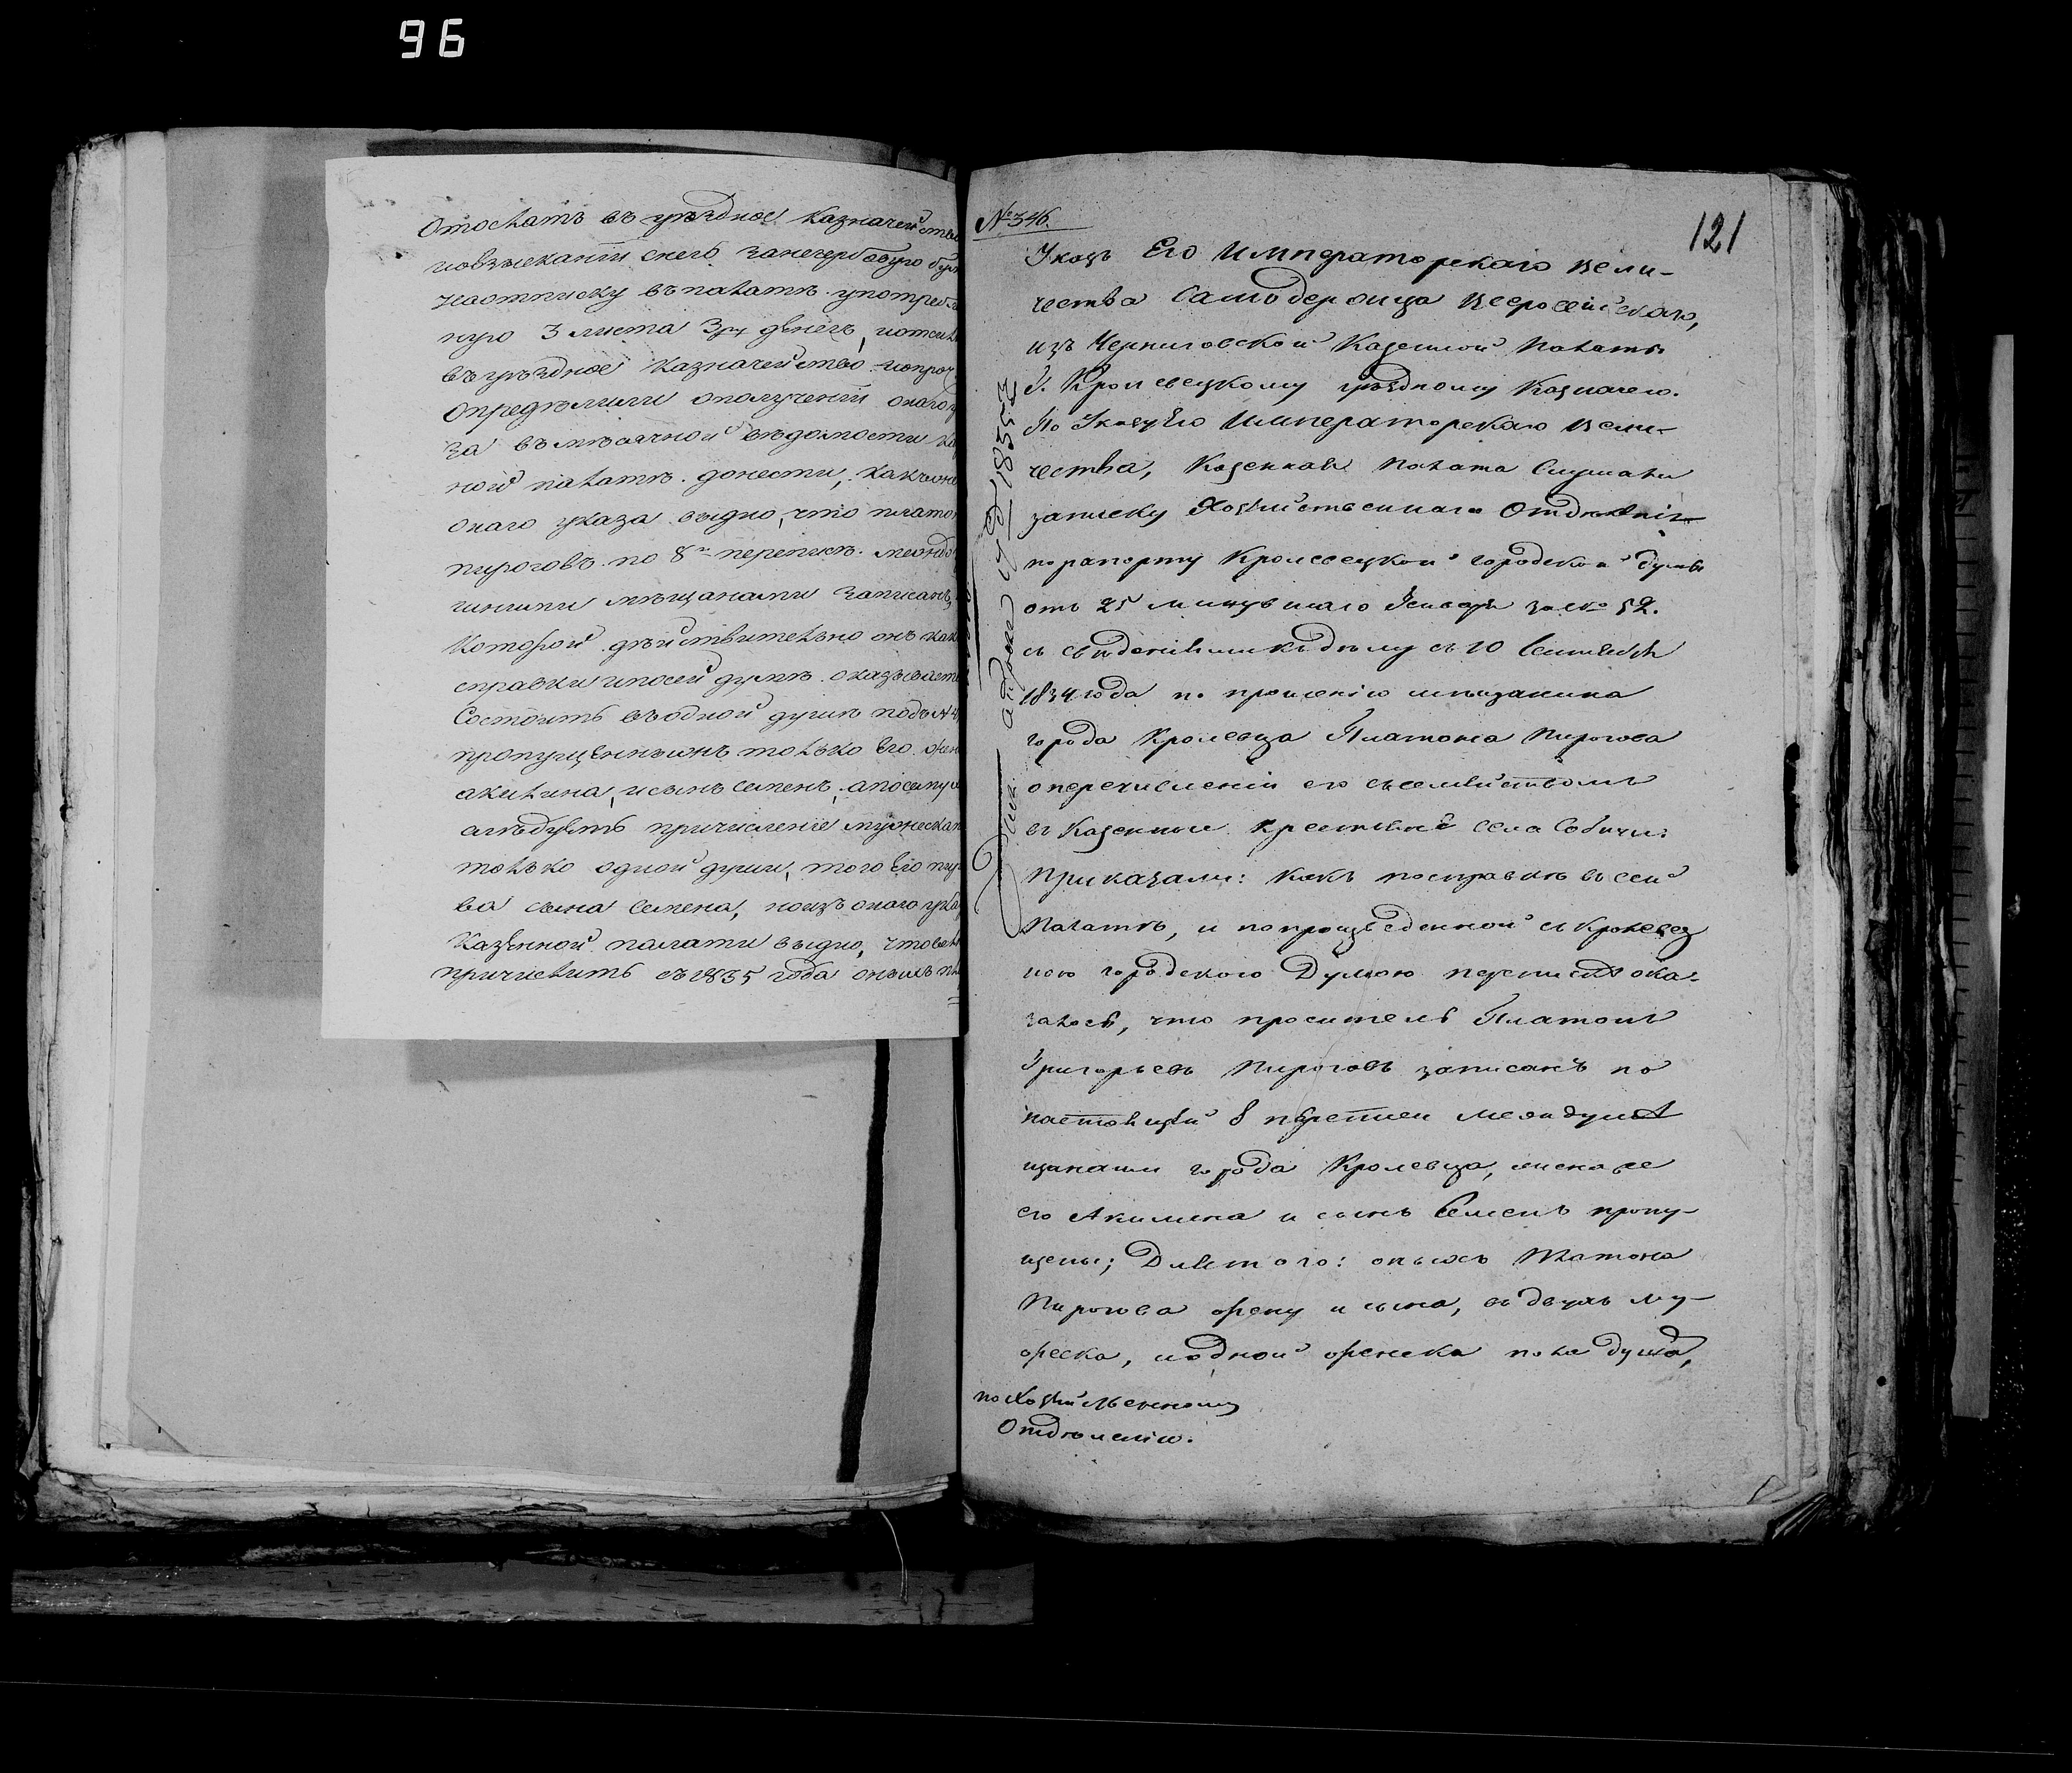 96
Отослать въ уѣздное Казначейство
иовзысканіи снего занегербовую бум
наотписку въ палатѣ употреблен
ную 3 листа 3 ру денегъ, иотсы
въ уѣздное Казначейство
Опредѣлили ополученіи онаго ука
за въ мѣсячной вѣдомости Ка
ной палатѣ донести, какъ
онаго указа видно, что платонъ
пироговъ по 8й переписи между
мѣщанами записанъ,
Которой дѣйствительно онъ какъ
справки ипосей думѣ оказывает
Состоитъ въ одной душѣ подъ №
пропущеннымъ только Его жен
акилина, исынъ семенъ, апосему и
слѣдуетъ причисленіе мужеска
только одной души, того Его пиро
ва сына семена, ноизъ онаго указ
Казенной палаты видно, что
причислить съ 1835 года онымъ
121
№ 346.
Указъ Его Императорскаго Вели-
чества Самодержца Всеросейскаго,
изъ Черниговской Казенной Палаты
Г. Кролевецкому уѣздному Казначею.
По Указу Его Императорскаго Вели-
чества, Казенная Палата Слушали
записку Хозяйственнаго Отделенія
порапорту Кролевецкой городской думы
отъ 25 минувшаго Генваря за № 52.
съ свѣденіями къ дѣлу съ 10 Сентября
1834 года по прошенію мѣщанина
города Кролевца Платона Пирогова
оперечисленіи его съ семействомъ
въ Казенные крестьяне села Собичи:
Приказали: Какъ посправкѣ въ сей
Палатѣ, и попроизведенной съ Кролевец
кою городскою Думою переписи ока-
залось, что проситель Платонъ
Григорьевъ Пироговъ записанъ по
настоящей 8 переписи между мѣ
щанами города Кролевца, жена же
его Акилина и сынъ Семенъ пропу-
щены; Для того: оныхъ Платона
Пирогова жену и сына, въ двухъ му-
жеска, иодной женска пола душа,
по Хозяйственному
Отдѣленію.